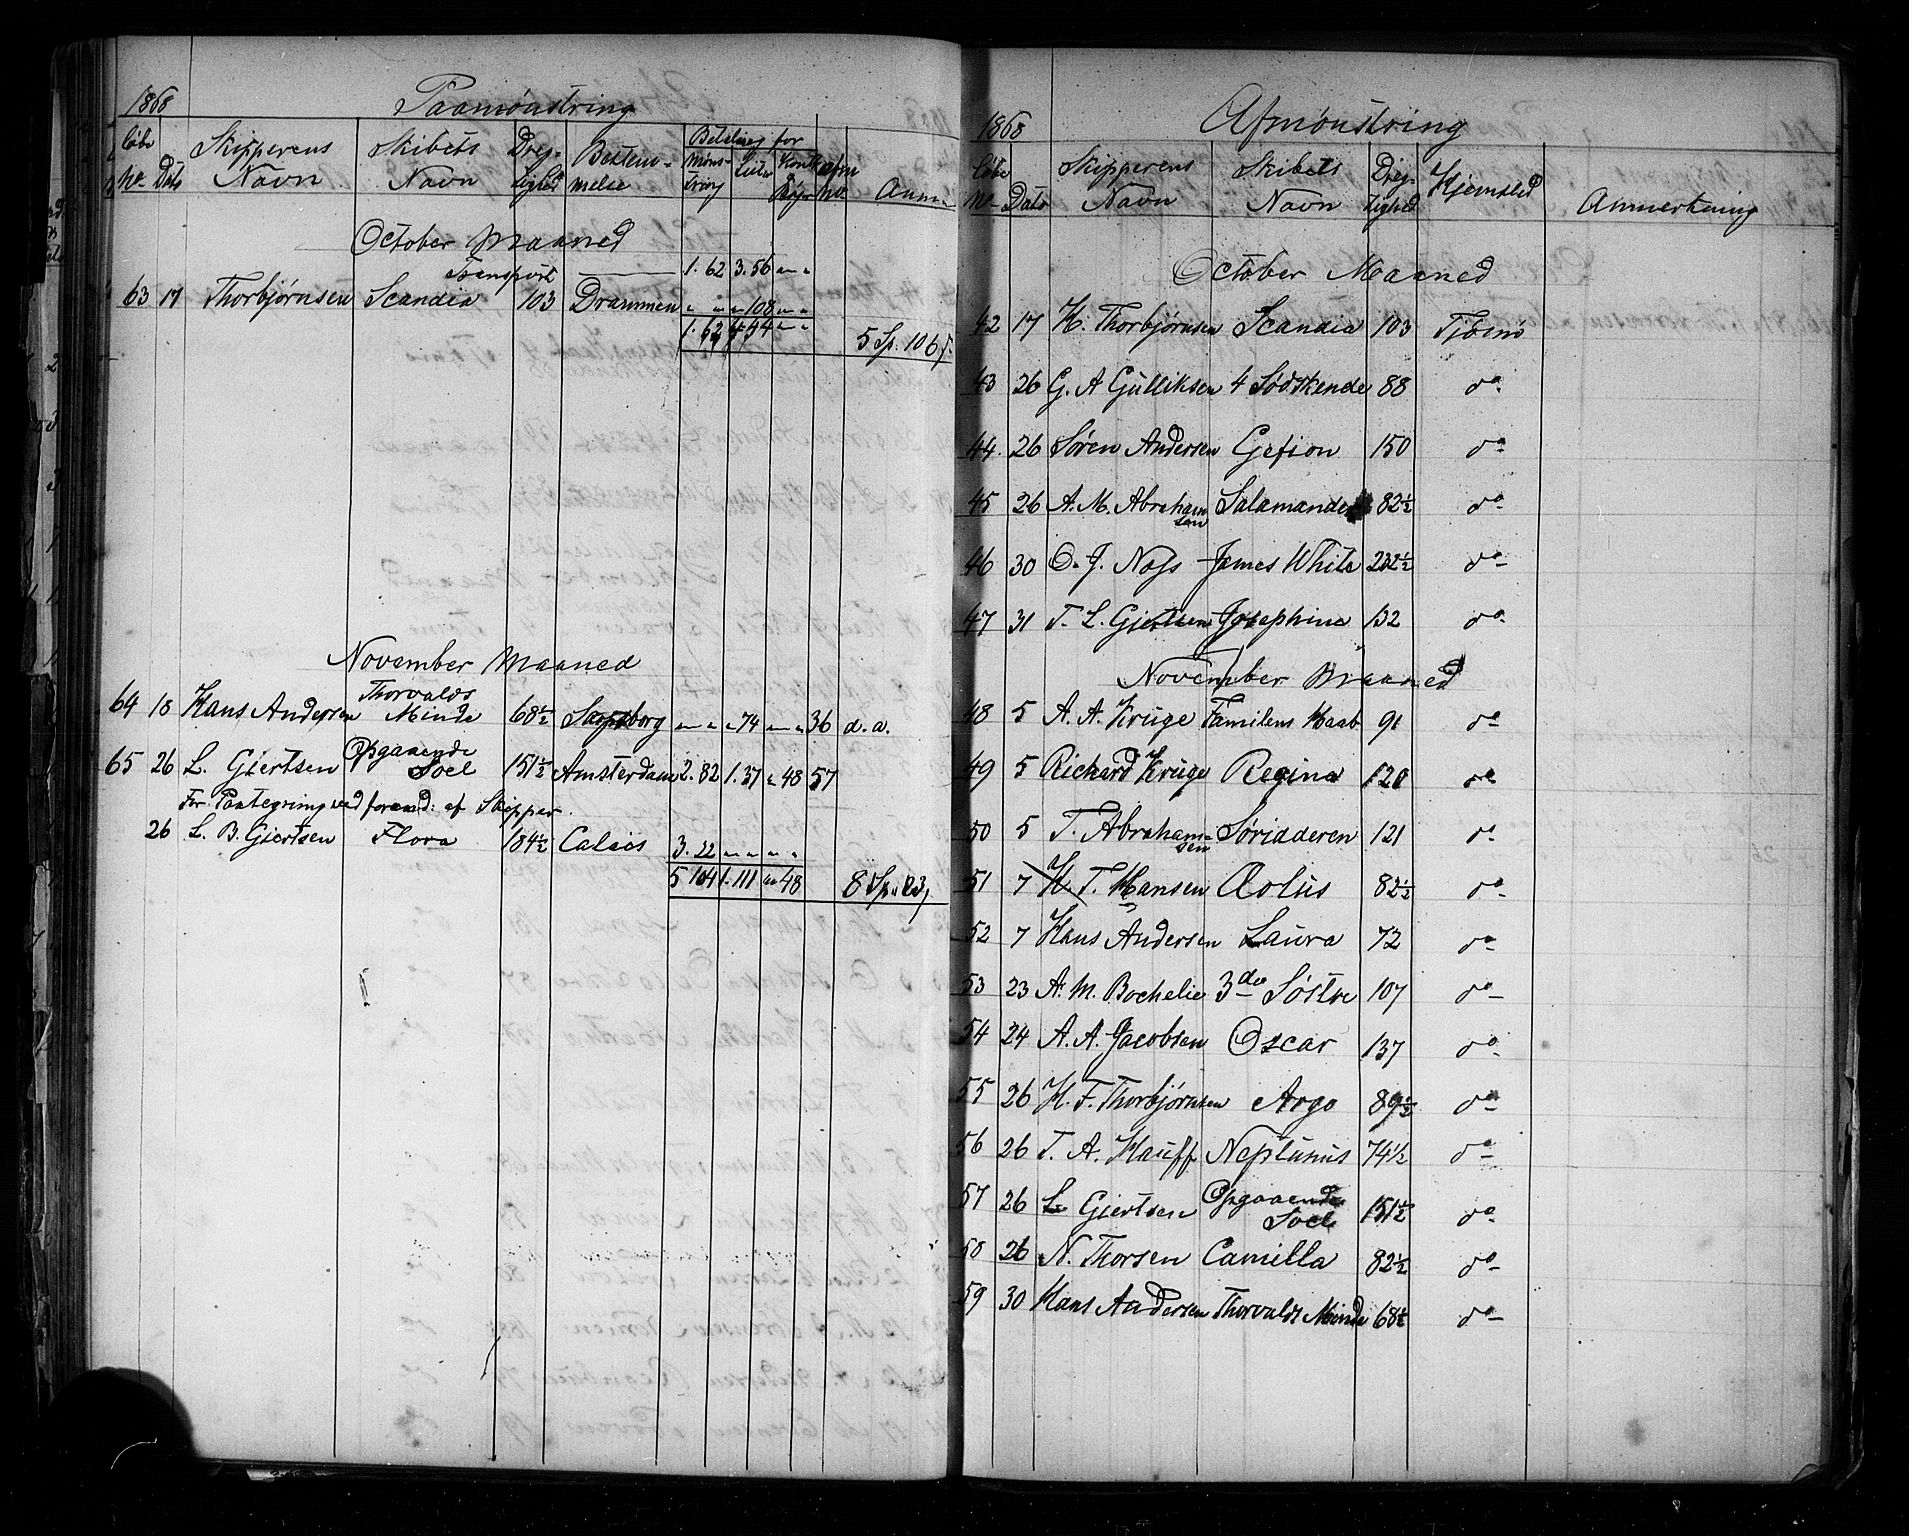 1868 Paamønstring
Løbe No. Dato Skipperens Navn Skibets Navn Dreg-tighed Bestem-melse Betaling for Møns-tring Liste afm No. Anm.
October Maaned
Transport 1. 62 3. 56 " "
63 17 Thorbjørnsen Scandia 103 Drammen " " " 108 " "
1. 62 4 44 " " 5 Sp. 106
November Maaned
64 18 Hans Andersen Thorvalds Minde 68½ Sarpsborg " " " 74 " " 36 d. a.
65 26 L. Giertsen Opgaaende Soel 151½ Amsterdam 2. 82 1. 37 " 48 57
For Paategning ved forand: af Skipper.
26 L. B. Giertsen Flora 184½ Calais 3. 22 " " " "
5 104 1. 111 " 48 8 Sp. 23
1868 Afmønstring
Løbe No Dato Skipperens Navn Skibets Navn Dreg-tighed Hjemsted Anmerkning
October Maaned
42 17 H. Thorbjørnsen Scandia 103 Tjømø
43 26 G. A Gulliksen 4 Sødskende 88 do.
44. 26 Søren Andersen Gefion 150 do
45 26 A. M. Abrahamsen Salamander 82½ do
46 30 O. J. Næss James White 232½ do
47 31 T. L. Giertsen Josephine 132 do.
November Maaned
48 5 A. A. Kruge Familens Haab 91 do
49 5 Richard Kruge Regina 120 do
50 5 T. Abrahamsen Søridderen 121 do
51 7 H. T. Hansen Æolus 82½ do
52 7 Hans Andersen Laura 72 do
53 23 A. M. Bochelie 3de Søstre 107 do
54 24 A. A. Jacobsen Oscar 137 do
55 26 H. F. Thorbjørnsen Argo 89½ do
56 26 T. A. Hauff Neptunus 74½ do
57 26 L. Giertsen Opgaaende Soel 151½ do
58 26 N. Thorsen Camilla 82½ do
59 30 Hans Andersen Thorvalds Minde 68½ do